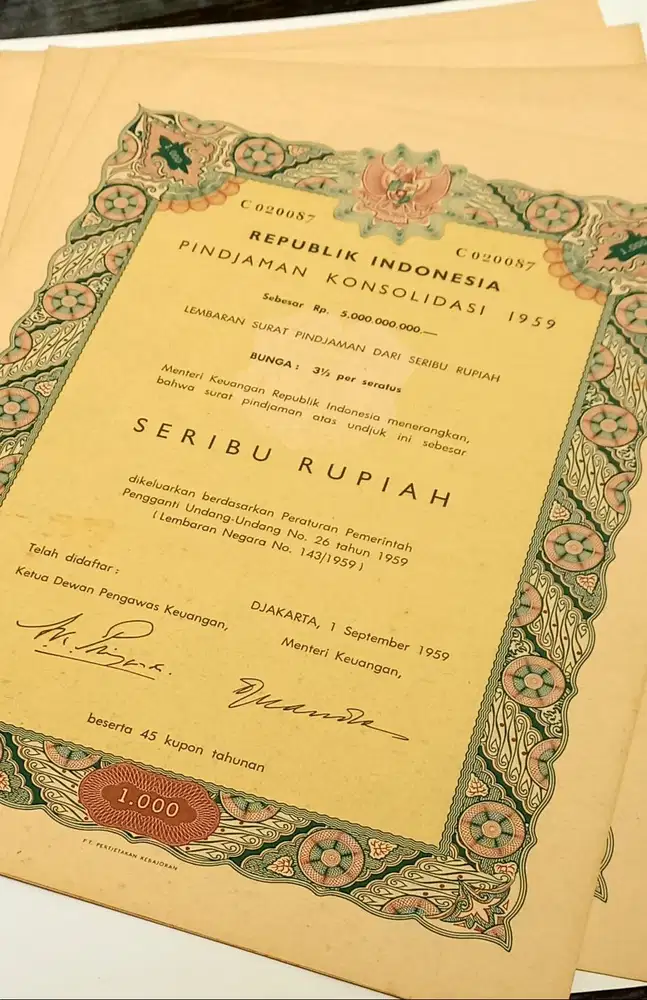 1.000
1.000
C 020087
C 020087
REPUBLIK INDONESIA
PINDJAMAN KONSOLIDASI 1959
Sebesar Rp. 5.000.000.000.—
LEMBARAN SURAT PINDJAMAN DARI SERIBU RUPIAH
BUNGA : 3½ per seratus
Menteri Keuangan Republik Indonesia menerangkan,
bahwa surat pindjaman atas undjuk ini sebesar
SERIBU RUPIAH
dikeluarkan berdasarkan Peraturan Pemerintah
Pengganti Undang-Undang No. 26 tahun 1959
( Lembaran Negara No. 143/1959 )
Telah didaftar :
Ketua Dewan Pengawas Keuangan,
DJAKARTA, 1 September 1959
Menteri Keuangan,
beserta 45 kupon tahunan
1.000
P.T. PERTJETAKAN KEBAJORAN